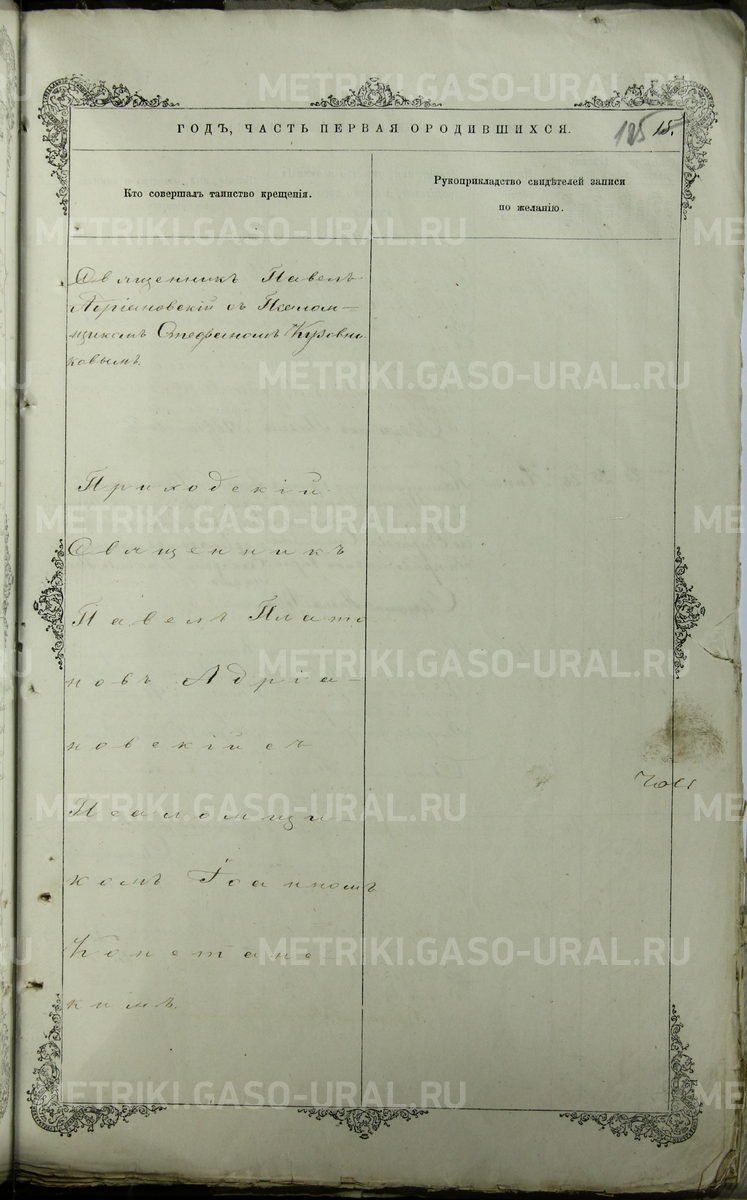 ГОДЪ, ЧАСТЬ ПЕРВАЯ ОРОДИВШИХСЯ.
125
15.
Кто совершалъ таинство крещенія.
Рукоприкладство свидѣтелей записи
по желанію.
Священникъ Павелъ
Адріановскій съ Псалом-
щикомъ Стефаномъ
ковымъ.
Приходскій
Священникъ
Павелъ Плато
новъ Адріа-
новскій съ
Псаломщи
комъ Іоанномъ
Констанс-
кимъ.
METRIKI.GASO-URAL.RU